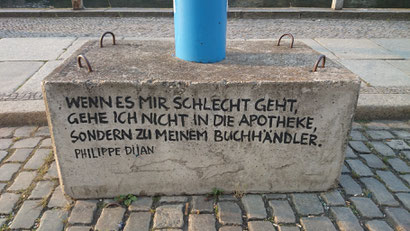 WENN ES MIR SCHLECHT GEHT,
GEHE ICH NICHT IN DIE APOTHEKE,
SONDERN ZU MEINEM BUCHHÄNDLER.
PHILIPPE DIJAN